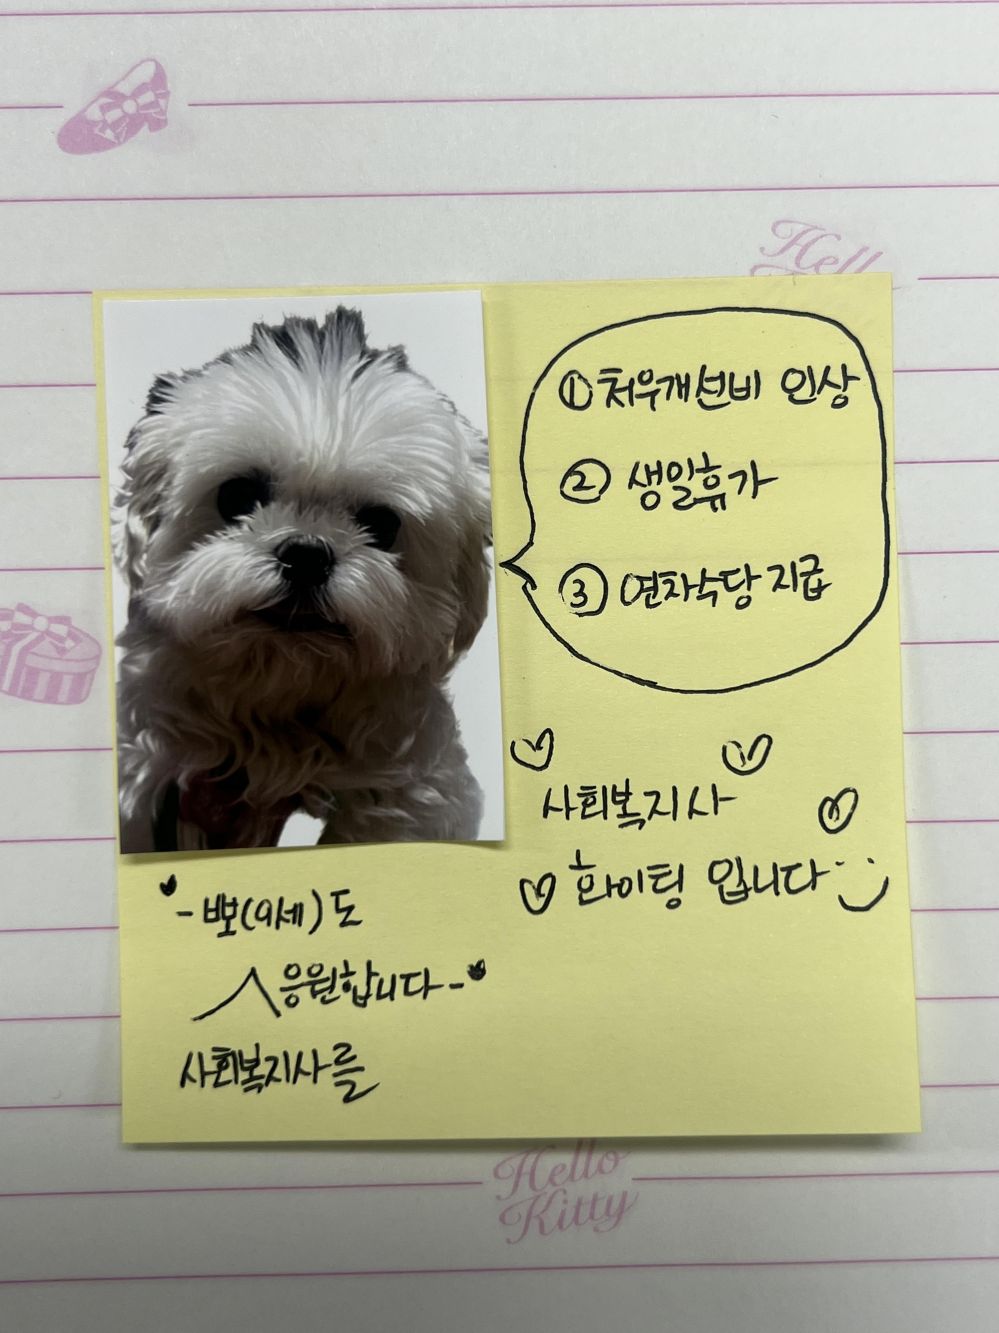 Hell
① 처우개선비 인상
② 생일휴가
③ 연차수당 지급
사회복지사
화이팅 입니다
- 뽀(9세)도
응원합니다-
사회복지사를
Hello
Kitty